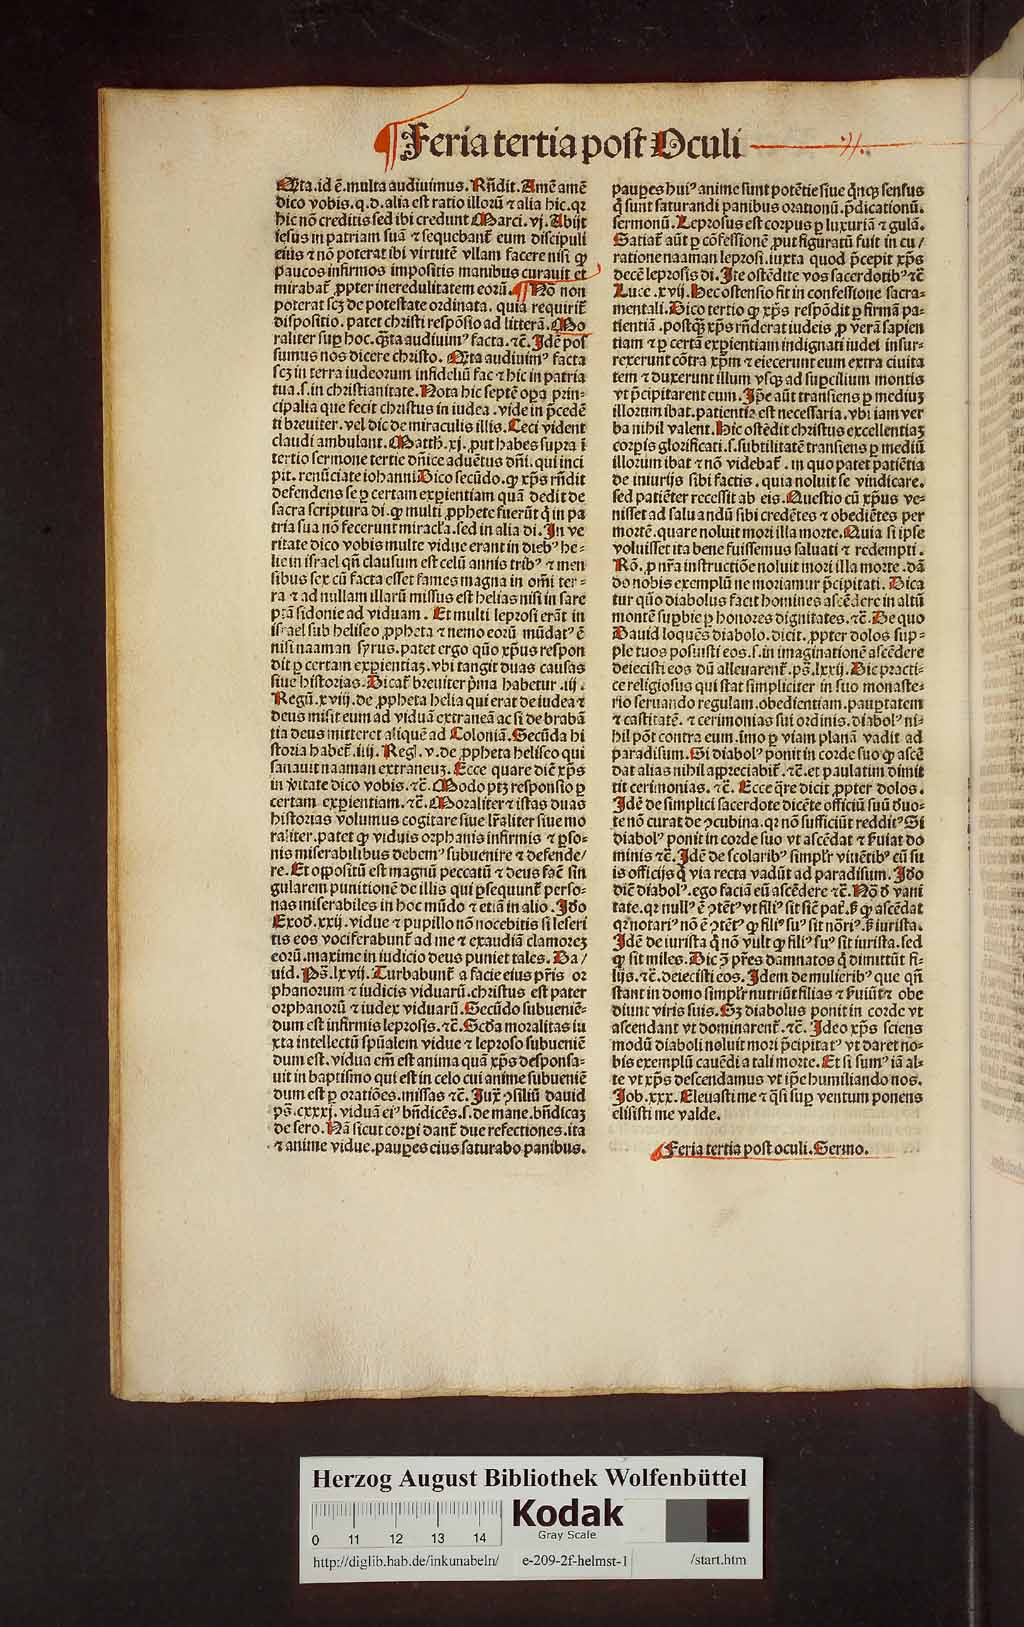 Feria tertia post Oculi
Q̄ta.id ē.multa audiuimus.Rñdit.Amē amē
dico vobis.q.d.alia est ratio illorū ⁊ alia hic.qꝛ
hic nō creditis sed ibi credunt Marci.vj.Abijt
iesus in patriam suā ⁊ sequebant̄ eum discipuli
eius ⁊ nō poterat ibi virtutē vllam facere nisi ꝙ
paucos infirmos impositis manibus curauit et
mirabat̄ ꝓpter incredulitatem eorū.¶Nō non
poterat scꝫ de potestate ordinata. quia requirit̄
dispositio. patet christi respōsio ad litterā.Mo
raliter suꝑ hoc.quāta audiuimꝰ facta.⁊c̄.Idē pos
sumus nos dicere christo. Q̄ta audiuimꝰ facta
scꝫ in terra iudeorum infideliū fac ⁊ hic in patria
tua.s.in christianitate.Nota hic septē oꝑa prin-
cipalia que fecit christus in iudea.vide in p̄cedē
ti breuiter.vel dic de miraculis illis.Ceci vident
claudi ambulant.Matth.xj.ꝓut habes supra ī
tertio sermone tertie dñice aduētus dñi.qui inci
pit.renūciate iohanni Dico secūdo.ꝙ xp̄s rñdit
defendens se ꝑ certam exꝑientiam quā dedit de
sacra scriptura di.ꝙ multi ꝓphete fuerūt q̇ in pa
tria sua nō fecerunt miracła.sed in alia di.In ve
ritate dico vobis multe vidue erant in diebꝰ he-
lie in israel qñ clausum est celū annis tribꝰ ⁊ men
sibus sex cū facta esset fames magna in om̄i ter-
ra ⁊ ad nullam illarū missus est helias nisi in sare
pta sidonie ad viduam. Et multi leprosi erāt in
israel sub heliseo ꝓpheta ⁊ nemo eorū mūdatꝰ ē
nisi naaman syrus.patet ergo quo xp̄us respon
dit ꝑ certam exꝑientiaꝫ.vbi tangit duas causas
siue historias.Dicat̄ breuiter p̄ma habetur.iij.
Regū.xviij.de ꝓpheta helia qui erat de iudea ⁊
deus misit eum ad viduā extraneā ac si de brabā
tia deus mitteret aliquē ad Coloniā.Secūda hi
storia habet̄.iiij.Regł.v.de ꝓpheta heliseo qui
sanauit naaman extraneuꝫ.Ecce quare diē xp̄s
in v̄itate dico vobis.⁊c̄.Modo ptꝫ responsio ꝑ
certam exꝑientiam.⁊c̄.Moraliter ⁊ istas duas
historias volumus cogitare siue lr̄aliter siue mo
raliter.patet ꝙ viduis orphanis infirmis ⁊ ꝑso-
nis miserabilibus debemꝰ subuenire ⁊ defende/
re.Et oppositū est magnū peccatū ⁊ deus fac̄ sin
gularem punitionē de illis qui ꝑsequunt̄ perso-
nas miserabiles in hoc mūdo ⁊ etiā in alio.Iđo
Exođ.xxij.vidue ⁊ pupillo non nocebitis si leseri
tis eos vociferabunt̄ ad me ⁊ exaudiā clamoreꝫ
eorū.maxime in iudicio deus puniet tales.Da/
uid.Ps̄.lxvij.Turbabunt̄ a facie eius pr̄is or
phanorum ⁊ iudicis viduarū.christus est pater
orphanorū ⁊ iudex viduarū.Secūdo subueniē-
dum est infirmis leprosis.⁊c̄.Scđa moralitas iu
xta intellectū spūalem vidue ⁊ leproso subueniē
dum est.vidua em̄ est anima quā xp̄s desponsa-
uit in baptismo qui est in celo cui anime subueniē
dum est ꝑ oratiōes.missas ⁊c̄.Jux̄ ꝯsiliū dauid
ps̄.cxxxj.viduā eiꝰ bn̄dicēs.s.de mane.bn̄dicaꝫ
de sero.Nā sicut corꝑi dant̄ due refectiones.ita
⁊ anime vidue.pauꝑes eius saturabo panibus.
pauꝑes huiꝰ anime sunt potētie siue q̇nqꝫ sensus
q̇ sunt saturandi panibus orationū.p̄dicationū.
sermonū.Leprosus est corpus ꝑ luxuriā ⁊ gulā.
Satiat̄ aūt ꝑ cōfessionē ꝓut figuratū fuit in cu/
ratione naaman leprosi.iuxta quod p̄cepit xp̄s
decē leprosis di.Ite ostēdite vos sacerdotibꝰ ⁊c̄
Luce.xvij.Hec ostensio fit in confessione sacra-
mentali.Dico tertio ꝙ xp̄s respōdit ꝑ firmā pa-
tientiā.postq̄ꝫ xp̄s rñderat iudeis ꝓ verā sapien
tiam ⁊ ꝑ certā exꝑientiam indignati iudei insur-
rexerunt cōtra xp̄m ⁊ eiecerunt eum extra ciuita
tem ⁊ duxerunt illum vsqꝫ ad suꝑcilium montis
vt p̄cipitarent eum.Ip̄e aūt transiens ꝑ mediuꝫ
illorum ibat.patientia est necessaria.vbi iam ver
ba nihil valent.Hic ostēdit christus excellentiaꝫ
corꝑis glorificati.s.subtilitatē transiens ꝑ mediū
illorum ibat ⁊ nō videbat̄.in quo patet patiētia
de iniurijs sibi factis.quia noluit se vindicare.
sed patiēter recessit ab eis.Questio cū xp̄us ve-
nisset ad saluandū sibi credētes ⁊ obediētes per
mortē.quare noluit mori illa morte.Quia si ipse
voluisset ita bene fuissemus saluati ⁊ redempti.
Rō.ꝓ nr̄a instructiōe noluit mori illa morte.dā
do nobis exemplū ne moriamur p̄cipitati.Dica
tur quo diabolus facit homines ascēdere in altū
montē suꝑbie ꝑ honores dignitates.⁊c̄.De quo
Dauid loquēs diabolo.dicit.ꝓpter dolos sup-
ple tuos posuisti eos.s.in imaginationē ascēdere
deiecisti eos dū alleuarent̄.ps̄.lxxij.Dic practi-
ce religiosus qui stat simpliciter in suo monaste-
rio seruando regulam.obedientiam.pauꝑtatem
⁊ castitatē.⁊ cerimonias sui ordinis.diabolꝰ ni-
hil pōt contra eum.imo ꝑ viam planā vadit ad
paradisum.Si diabolꝰ ponit in corde suo ꝙ ascē
dat alias nihil appreciabit̄.⁊c̄.et paulatim dimit
tit cerimonias.⁊c̄.Ecce q̄re dicit ꝓpter dolos.
Idē de simplici sacerdote dicēte officiū suū đuo-
te nō curat de ꝯcubina.qꝛ nō sufficiūt redditꝰ Si
diabolꝰ ponit in corde suo vt ascēdat ⁊ ẜuiat do
minis ⁊c̄.Idē de scolaribꝰ simplr̄ viuētibꝰ cū su
is officijs q̇ via recta vadūt ad paradisum.Iđo
diē diabolꝰ.ego faciā eū ascēdere ⁊c̄.Nō đ vani
tate.qꝛ nullꝰ ē ꝯtētꝰ vt filiꝰ sit sic̄ pat̄.ẜ ꝙ ascēdat
qꝛ notariꝰ nō ē ꝯtētꝰ ꝙ filiꝰ suꝰ sit nōriꝰ.ẜ iurista.
Idē de iurista q̇ nō vult ꝙ filiꝰ suꝰ sit iurista.sed
ꝙ sit miles.Dic ꝯ pr̄es damnatos q̇ dimittūt fi-
lijs.⁊c̄.deiecisti eos.Idem de mulieribꝰ que qn̄
stant in domo simplr̄ nutriūt filias ⁊ ẜuiūt ⁊ obe
diunt viris suis.Sꝫ diabolus ponit in corde vt
ascendant vt dominarent̄.⁊c̄.Ideo xp̄s sciens
modū diaboli noluit mori p̄cipitatꝰ vt daret no-
bis exemplū cauēdi a tali morte.Et si sumꝰ iā al-
te vt xp̄s descendamus vt ip̄e humiliando nos.
Job.xxx.Eleuasti me ⁊ q̄si suꝑ ventum ponens
elisisti me valde.
Feria tertia post oculi.Sermo.
Herzog August Bibliothek Wolfenbüttel
0 11 12 13 14
Kodak
Gray Scale
http://diglib.hab.de/inkunabeln/ e-209-2f-helmst-1 /start.htm